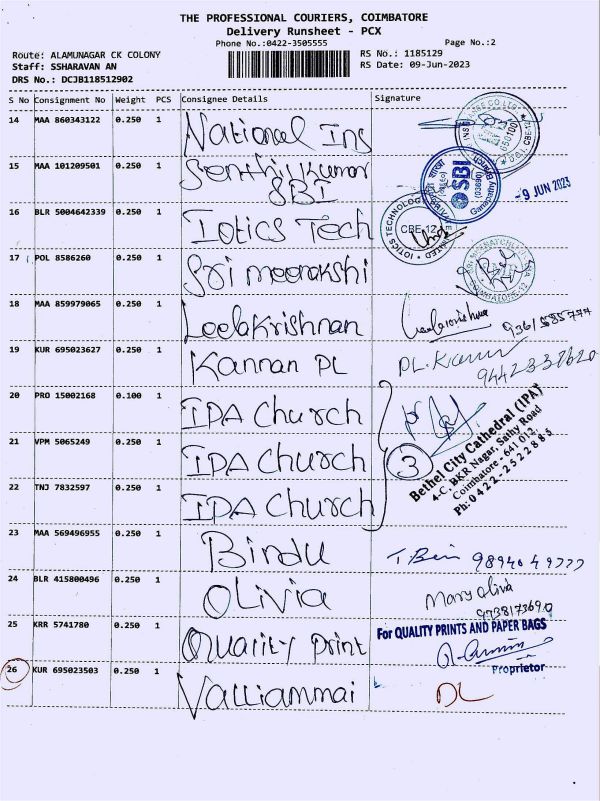 THE PROFESSIONAL COURIERS, COIMBATORE
Delivery Runsheet - PCX
Phone No.:0422-3505555
Page No.:2
Route: ALAMUNAGAR CK COLONY
RS No.: 1185129
Staff: SSHARAVAN AN
RS Date: 09-Jun-2023
DRS No.: DCJB118512902
S No Consignment No Weight PCS Consignee Details Signature
14 MAA 860343122 0.250 1 National Ins
15 MAA 101209501 0.250 1 Senthil Kumar
SBI
SBI
Ganapathy
-9 JUN 2023
16 BLR 5004642339 0.250 1 Iotics Tech
IOTICS TECHNOLOGY
CBE-12
17 POL 8586260 0.250 1 Sri meenakshi
COIMBATORE-12
18 MAA 859979065 0.250 1 Leelakrishnan
9361585777
19 KUR 695023627 0.250 1 Kannan PL PL.Kannan
9442337620
20 PRO 15002168 0.100 1 IPA Church
21 VPM 5065249 0.250 1 IPA Church 3
22 TNJ 7832597 0.250 1 IPA Church
Bethel City Cathedral (IPA)
4-C, BKR Nagar, Sathy Road
Coimbatore - 641 012.
Ph: 0422-2522885
23 MAA 569496955 0.250 1 Bindu
24 BLR 415800496 0.250 1 Olivia Mary olivia
9738173690
25 KRR 5741780 0.250 1 Quality Print
For QUALITY PRINTS AND PAPER BAGS
Proprietor
26 KUR 695023503 0.250 1 Valliammai DL